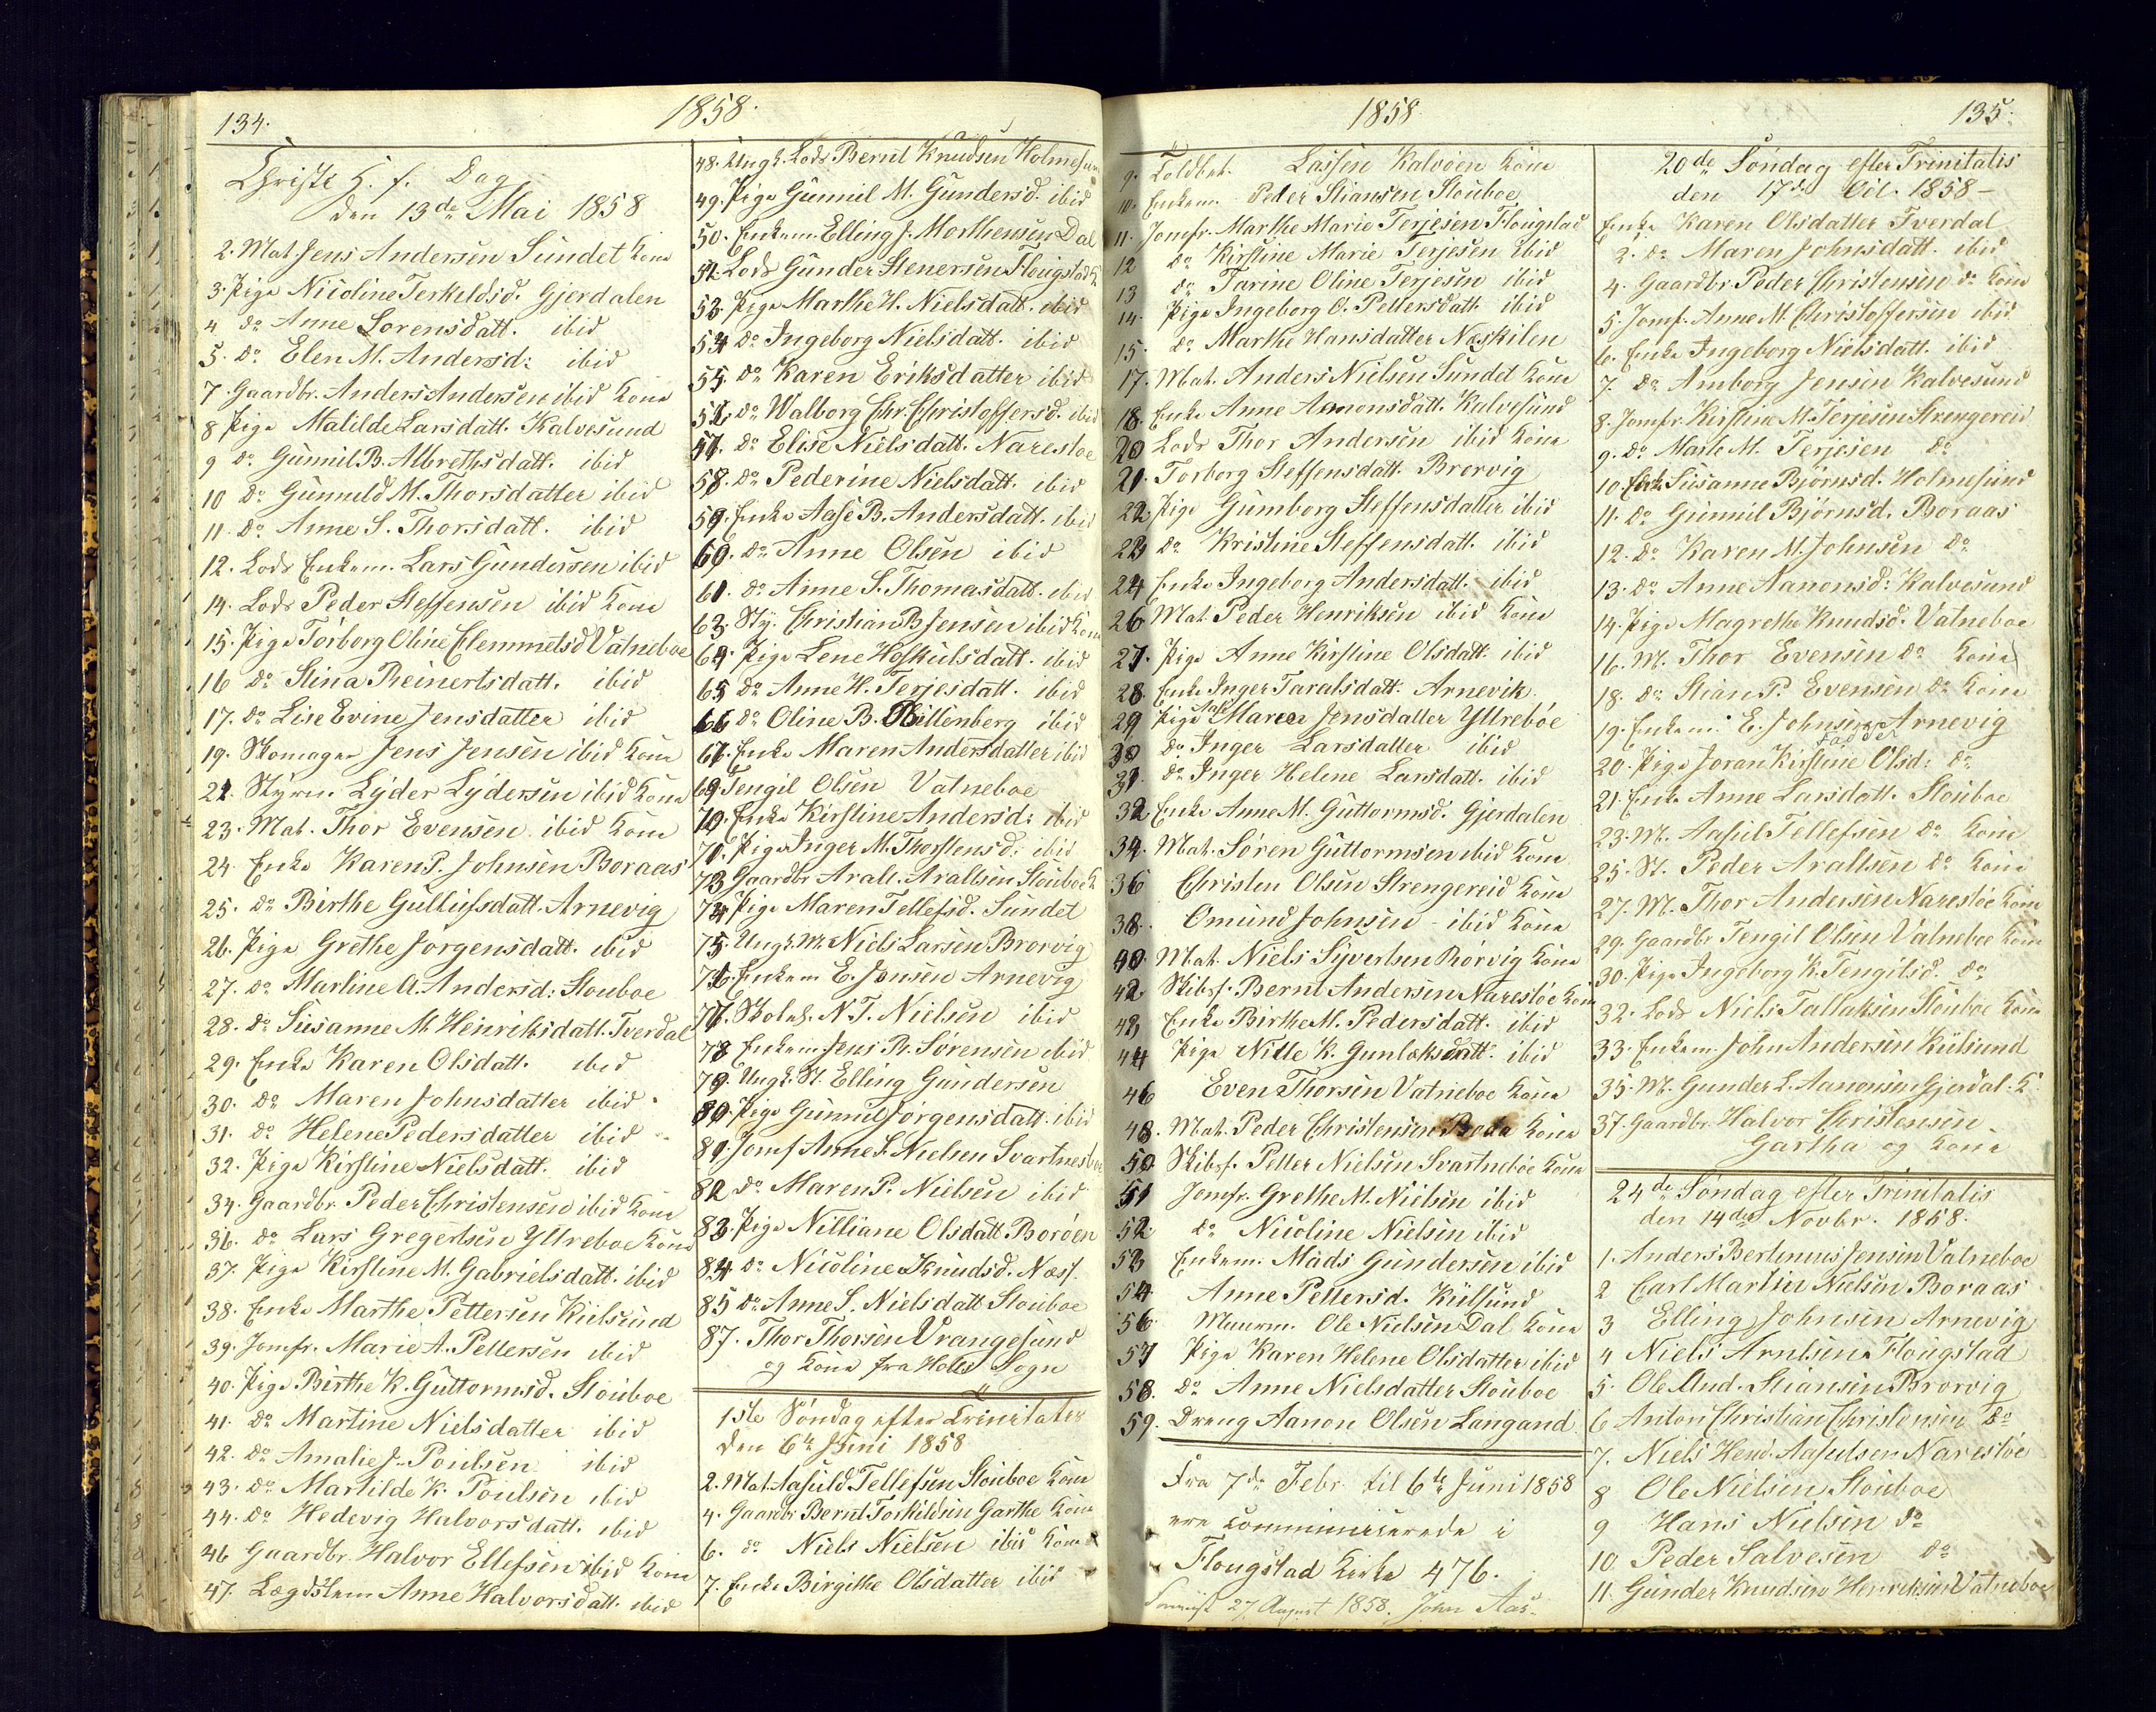 134.
1858.
Christi H. f. Dag
den 13de Mai 1858
2. Mat. Jens Andersen Sundet Kone
3. Pige Nicoline Terkeldsd. Gjerdalen
4 do Anne Lorensdatt. ibid
5. do Elen M. Andersd: ibid
7. Gaardbr. Anders Andersen ibid Kone
8 Pige Matilde Larsdatt. Kalvesund
9 do Gunnil B. Albrethsdatt. ibid
10 do Gunneld M. Thorsdatter ibid
11. do Anne S. Thorsdatt. ibid
12. Lods Enkem. Lars Gundersen ibid
14. Lods Peder Steffensen ibid Kone
15. Pige Torborg Oline Clemmetsd Vatneboe
16 do Stina Reinertsdatt. ibid
17. do Lise Evine Jensdatter ibid
19. Skomager Jens Jensen ibid Kone
21. Styrm. Lyder Lydersen ibid Kone
23. Mat. Thor Evensen ibid Kone
24. Enke Karen P. Johnsen Boraas
25. do Birthe Gulliksdatt. Arnevig
26. Pige Grethe Jorgensdatt. ibid
27. do Martine A. Andersd: Stouboe
28. do Susanne M. Heinriksdatt. Tverdal
29. Enke Karen Olsdatt. ibid
30. do Maren Johnsdatter ibid
31. do Helene Pedersdatter ibid
32. Pige Kirstine Nielsdatt. ibid
34. Gaardbr. Peder Christensen ibid Kone
36. do Lars Gregertsen Yttreboe Kone
37. Pige Kirstine M. Gabrielsdatt. ibid
38. Enke Marthe Pettersen Kielsund
39. Jomfr. Marie A. Pettersen ibid
40. Pige Birthe K. Guttormsd. Stouboe
41. do Martine Nielsdatter ibid
42. do Amalie J. Poulsen ibid
43. do Martilde K. Poulsen ibid
44. do Hedevig Halvorsdatt. ibid
46 Gaardbr. Halvor Ellefsen ibid Kone
47. Lægdslem Anne Halvorsdatt. ibid
48. Ungk. Lods Bernt Knudsen Holmesun
49. Pige Gunnil M. Gundersd. ibid
50. Enkem. Elling J. Morthensen Dal
52. Lods Gunder Stenersen Flougstad K
53. Pige Marthe H. Nielsdatt. ibid
54 do Ingeborg Nielsdatt. ibid
55. do Karen Eriksdatter ibid
56. do Walborg Chr. Christoffersd. ibid
57. do Elise Nielsdatt. Narestoe
58. do Pederine Nielsdatt. ibid
59. Enke Aase B. Andersdatt. ibid
60. do Anne Olsen ibid
61. do Anne S. Thomasdatt. ibid
63. Sty. Christian B Jensen ibid Kone
64. Pige Lene Hoskulsdatt. ibid
65 do Anne H. Terjesdatt. ibid
66 do Oline B. Billenberg ibid
67. Enke Maren Andersdatter ibid
69. Tengil Olsen Vatneboe
70. Enke Kirstine Andersd: ibid
71. Pige Inger M. Thorstensd: ibid
73 Gaardbr Aralt. Araltsen Stouboe K
74. Pige Maren Tellefsd. Sundet
75. Ungk. M. Niels Larsen Brorvig
76. Enkem E. Jonsen Arnevig
77. Skoleh. N. T. Nielsen ibid
78 Enkem Jens R. Sörensen ibid
79. Ungk. St. Elling Gundersen
80. Pige Gunnil Jorgensdatt. ibid
81. Jomf Anne S. Nielsen Svartnesboe
82 do Maren P. Nielsen ibid
83. Pige Nilliane Olsdatt. Boroen
84. do Nicoline Knudsd. Næsk.
85 do Anne S. Nielsdatt Stouboe
87. Thor Thorsen Vrangesund
og Kone fra Holts Sogn
1ste Söndag efter Trinitatis
den 6te Juni 1858
2. Mat. Aasuld Tellefsen Stouboe Kone
4. Gaardb. Bernt Torkildsen Gartha Kone
6. do Niels Nielsen ibid Kone
7. Enke Birgithe Olsdatter ibid
1858
135.
9. Toldbet. Lassen Kalvöen Kone
10. Enkem. Peder Stiansen Stouboe
11. Jomfr. Marthe Marie Terjesen Flougstad
12 do Kirstine Marie Terjesen ibid
13 do Tarine Oline Terjesen ibid
14. Pige Ingeborg O. Pettersdatt. ibid
15. do Marthe Hansdatter Næskilen
17. Mat. Anders Nielsen Sundet Kone
18. Enke Anne Aanonsdatt. Kalvesund
20 Lods Thor Andersen ibid Kone
21. Torborg Steffensdatt. Brorvig
22. Pige Gumborg Steffensdatter ibid
23 do Kristine Steffensdatt. ibid
24 Enke Ingeborg Andersdatt. ibid
26 Mat. Peder Henriksen ibid Kone
27. Pige Anne Kirstine Olsdatt. ibid
28 Enke Inger Taralsdatt. Arnevik
29 Pige Maren Jensdatter Yttreböe
30 do Inger Larsdatter ibid
31. do Inger Helene Larsdatt. ibid
32 Enke Anne M. Guttormsd. Gjerdalen
34. Mat. Sören Guttormsen ibid Kone
36 Christen Olsen Strengereid Kone
38. Omund Johnsen - ibid Kone
40. Mat. Niels Syvertsen Rörvig Kone
42. Skibsf. Bernt Andersen Narestöe Kone
43, Enke Birthe M. Pedersdatt. ibid
44 Pige Nille K. Gunlaksdatt. ibid
46 Even Thorsen Vatneboe Kone
48. Mat. Peder Christensen Boda Kone
50. Skibsf. Petter Nielsen Svartneboe Kone
51 Jomfr. Grethe M. Nielsen ibid
52. do Nicoline Nielsen ibid
53 Enkem. Mads Gundersen ibid
54 Anne Pettersd. Kielsund
56 Muurm. Ole Nielsen Dal Kone
57 Pige Karen Helene Olsdatter ibid
58. do Anne Nielsdatter Stouboe
59. Dreng Aanon Olsen Langand
Fra 7de Febr. til 6te Juni 1858
ere communicerede i
Flougstad Kirke 476.
27 August 1858. John Aas.
20de Söndag efter Trinitatis
den 17de Oct. 1858 -
Enke Karen Olsdatter Tverdal
2. do Maren Johnsdatt. ibid
4. Gaardbr. Peder Christensen do Kone
5. Jomf. Anne M. Christoffersen ibid
6. Enke Ingeborg Nielsdatt. ibid
7. do Amborg Jensen Kalvesund
8. Jomfr. Kirstine M. Terjesen Strengereid
9. do Marte M. Terjesen do
10. Enke Susanne Bjørnsd. Holmesund
11. do Gunnil Bjørnsd. Boraas
12. do Karen M. Johnsen do
13. do Anne Aanonsd: Kalvesund
14. Pige Magrethe Knudsd. Vatneboe
16. M. Thor Evensen do Kone
18. do Stian P. Evensen do Kone
19. Enkem. E. Johnsen Arnevig
20. Pige Joran Kirstine Olsd: do
21. Enke Anne Larsdatt. Stouboe
23. M. Aasul Tellefsen do Kone
25. St. Peder Araltsen do Kone
27. M. Thor Andersen Narestöe Kone
29. Gaardbr Tengil Olsen Vatneboe Kone
30. Pige Ingeborg K. Tengilsd. do
32. Lods Niels Tallaksen Stouboe Kone
33. Enkem. John Andersen Kielsund
35. M. Gunder L. Aanonsen Gjerdal. K.
37. Gaardbr. Halvor Christensen
Gartha og Kone
24de Söndag efter Trinitatis
den 14de Novbr. 1858.
1. Anders Bertinius Jensen Vatneboe
2 Carl Martin Nielsen Boraas
3 Elling Johnsen Arnevig
4 Niels Arntsen Flougstad
5. Ole And. Stiansen Brorvig
6 Anton Christian Christensen do
7. Niels Hend. Aasulsen Narestöe
8 Ole Nielsen Stouboe
9 Hans Nielsen do
10. Peder Salvesen do
11. Gunder Knudsen Henriksen Vatneboe